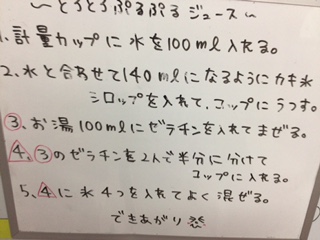 ～とろとろぷるぷるジュース～
1.計量カップに水を100ml入れる。
2.水と合わせて140mlになるようにカキ氷
シロップを入れて、コップにうつす。
③.お湯100mlにゼラチンを入れてまぜる。
4.③のゼラチンを2人で半分に分けて
コップに入れる。
5.4に氷4つを入れてよく混ぜる。
できあがり